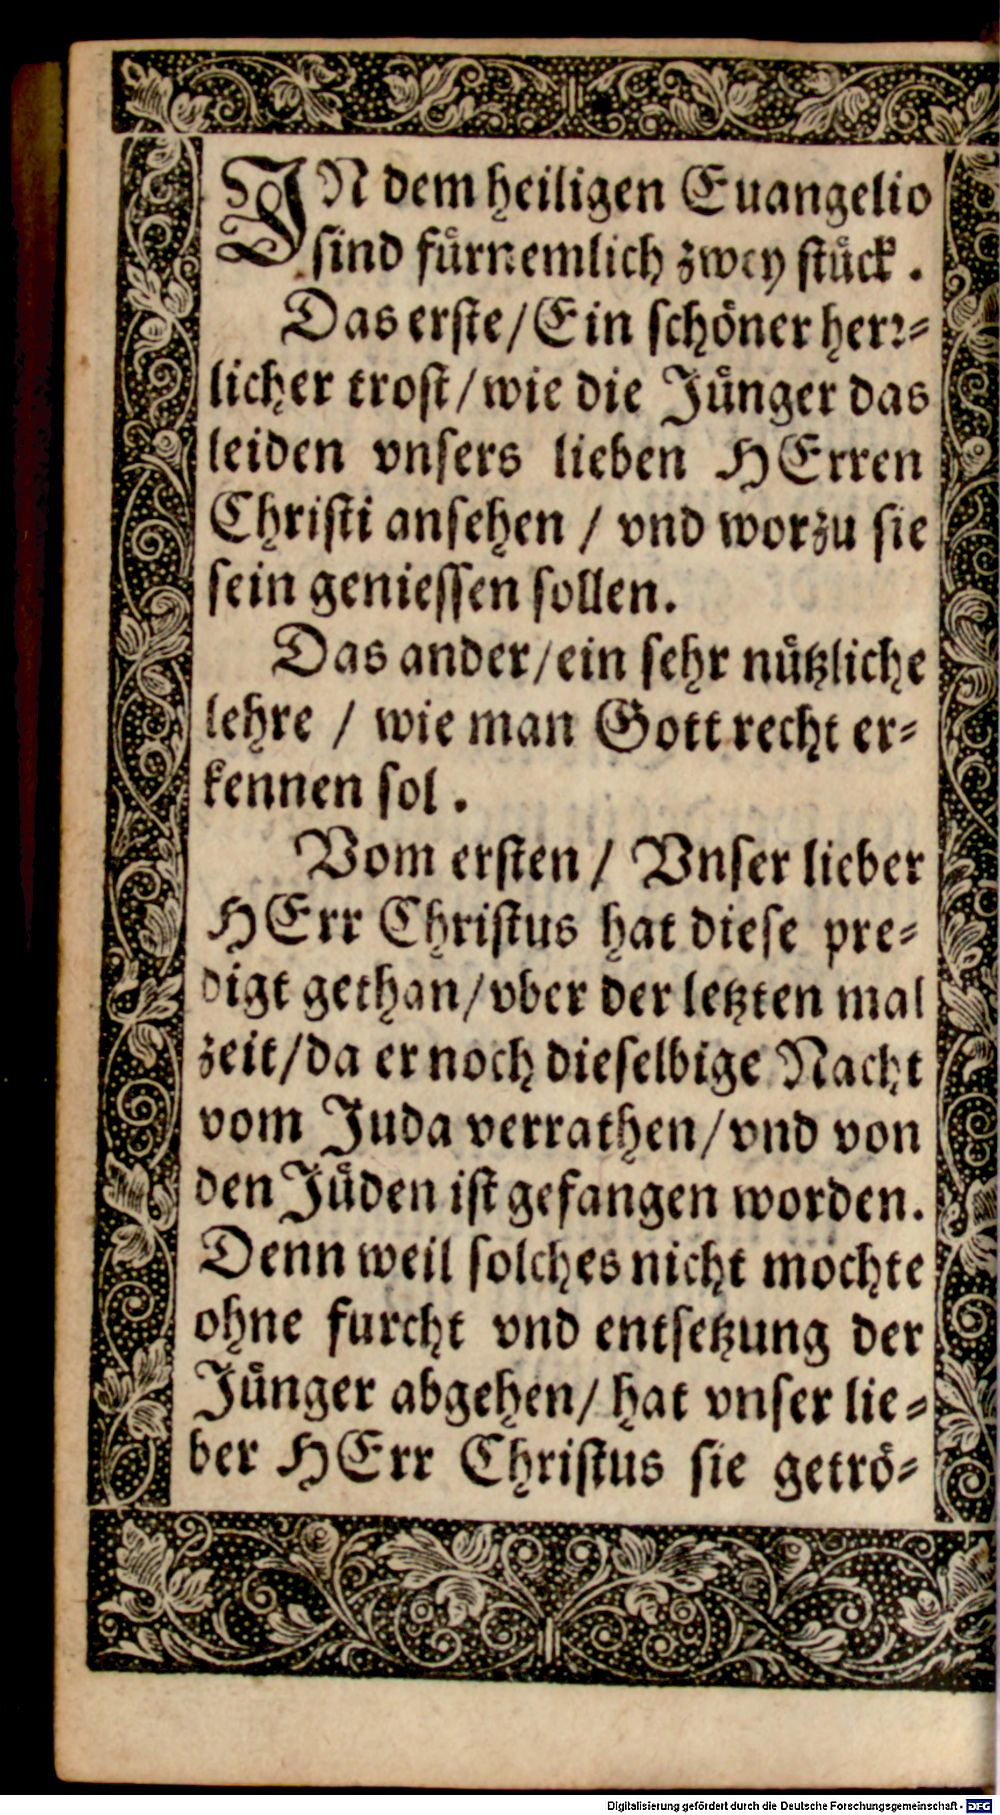 IN dem heiligen Euangelio
sind fürnemlich zwey stück.
Das erste/Ein schöner herr-
licher trost/wie die Jünger das
leiden vnsers lieben HErren
Christi ansehen / vnd worzu sie
sein geniessen sollen.
Das ander/ein sehr nützliche
lehre / wie man Gott recht er-
kennen sol.
Vom ersten / Vnser lieber
HErr Christus hat diese pre-
digt gethan/vber der letzten mal
zeit/da er noch dieselbige Nacht
vom Juda verrathen/vnd von
den Jüden ist gefangen worden.
Denn weil solches nicht mochte
ohne furcht vnd entsetzung der
Jünger abgehen/ hat vnser lie-
ber HErr Christus sie getrö-
Digitalisierung gefördert durch die Deutsche Forschungsgemeinschaft - DFG